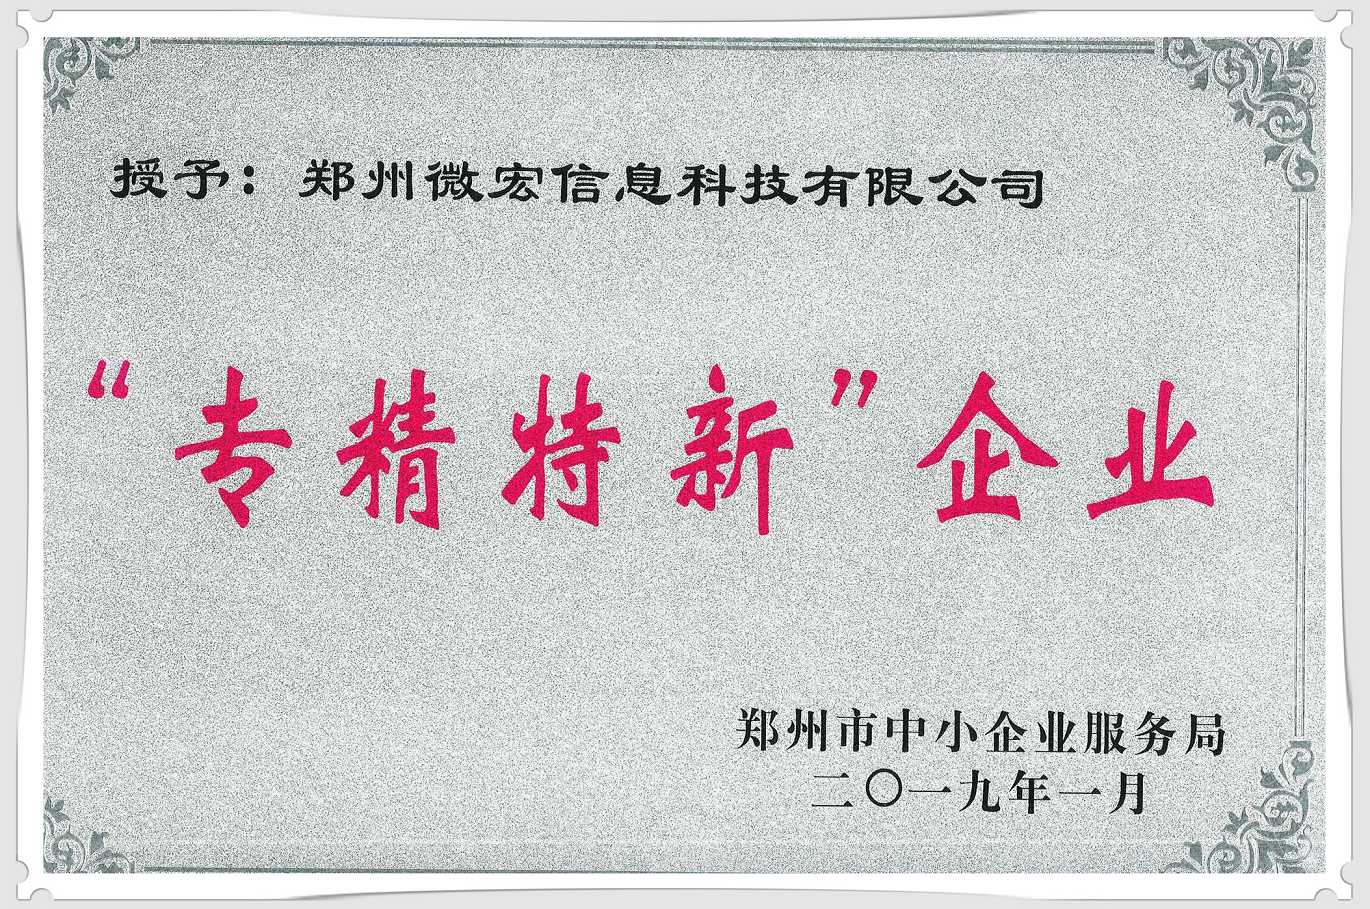 授予：郑州微宏信息科技有限公司
“专精特新”企业
郑州市中小企业服务局
二〇一九年一月